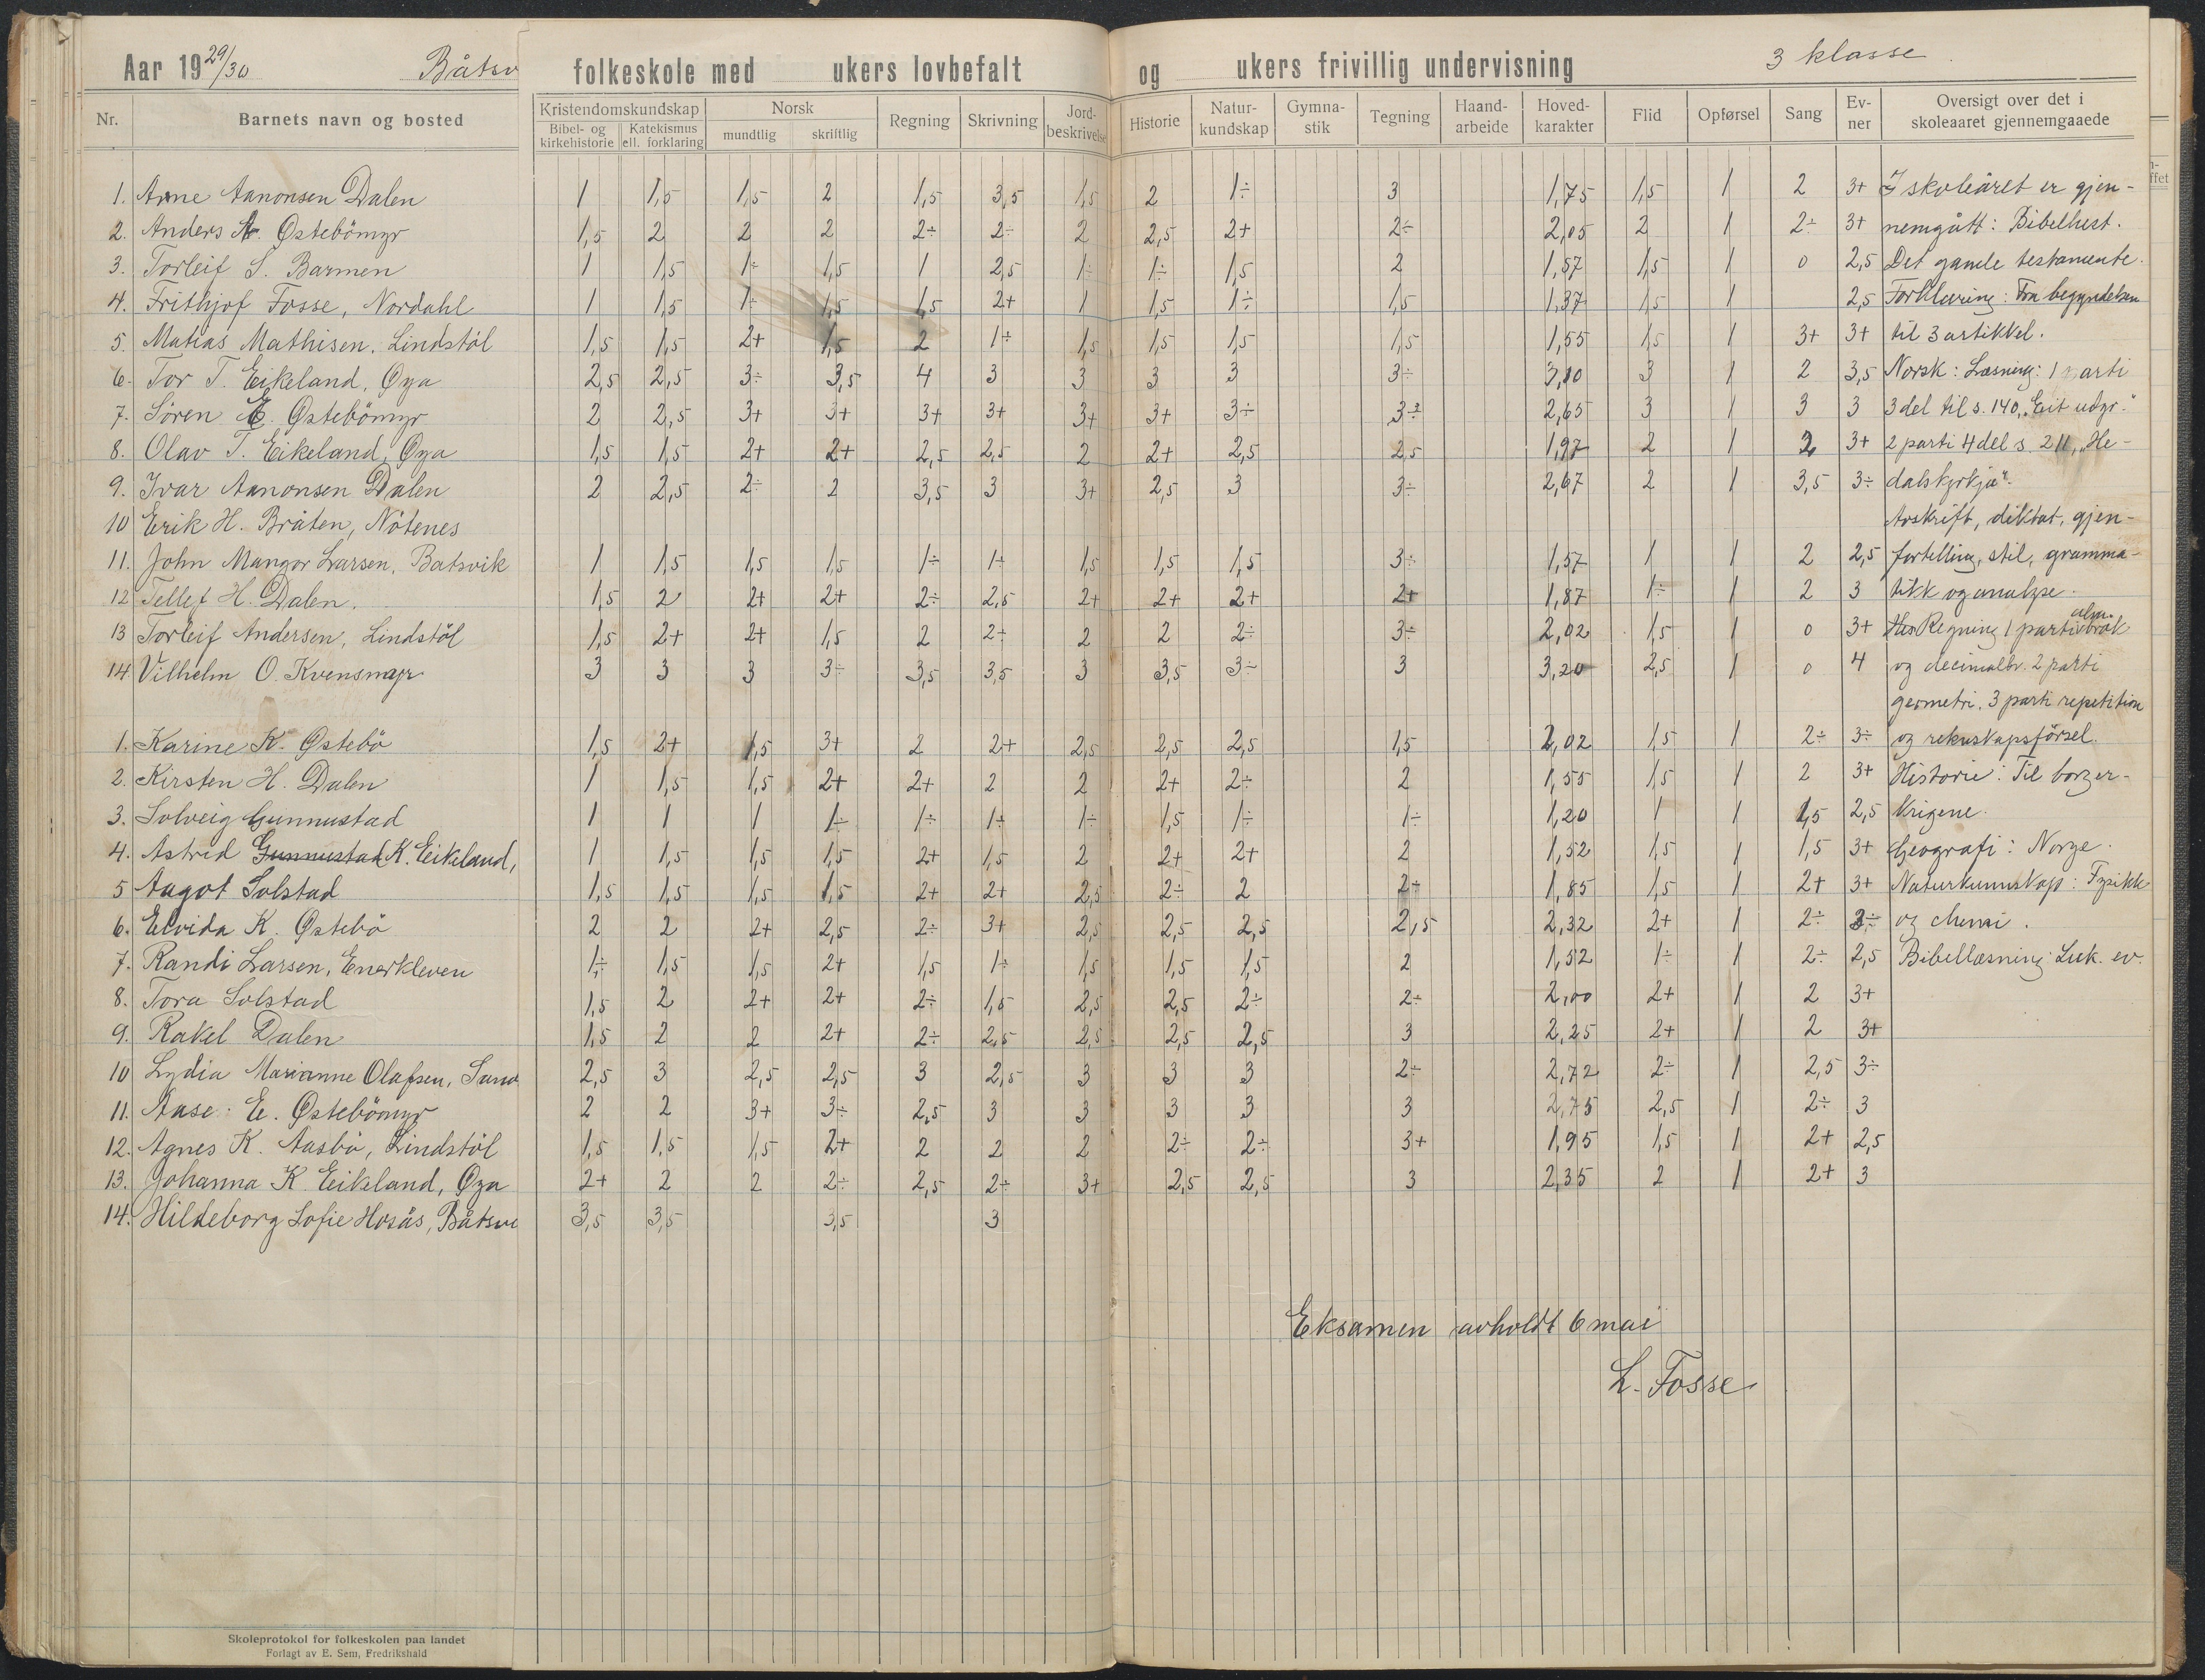 Aar 19 29/30 Båtsv folkeskole med ukers lovbefalt og ukers frivillig undervisning 3 klasse
Nr. Barnets navn og bosted Kristendomskundskap Norsk Regning Skrivning Jord-beskrivelse Historie Natur-kundskap Gymna-stik Tegning Haand-arbeide Hoved-karakter Flid Opførsel Sang Ev-ner Oversigt over det i skoleaaret gjennemgaaede
Bibel- og kirkehistorie Katekismus ell. forklaring mundtlig skriftlig
1. Arne Aanonsen Dalen 1 1,5 1,5 2 1,5 3,5 1,5 2 1÷ 3 1,75 1,5 1 2 3+ I skoleåret er gjen-
2. Anders A. Østebömyr 1,5 2 2 2 2÷ 2÷ 2 2,5 2+ 2÷ 2,05 2 1 2÷ 3+ nemgått: Bibelhist.
3. Torleif S. Barmen 1 1,5 1÷ 1,5 1 2,5 1÷ 1÷ 1,5 2 1,57 1,5 1 0 2,5 Det gamle testamente.
4. Frithjof Fosse, Nordahl 1 1,5 1÷ 1,5 1,5 2+ 1 1,5 1÷ 1,5 1,37 1,5 1 2,5 Forklaring: Fra begyndelsen
5. Matias Mathisen. Lindstöl 1,5 1,5 2+ 1,5 2 1÷ 1,5 1,5 1,5 1,5 1,55 1,5 1 3+ 3+ til 3 artikkel.
6. Tor T. Eikeland, Øya 2,5 2,5 3÷ 3,5 4 3 3 3 3 3÷ 3,10 3 1 2 3,5 Norsk: Læsning: 1 parti
7. Sören E. Østebömyr 2 2,5 3+ 3+ 3+ 3+ 3+ 3+ 3÷ 3÷ 2,65 3 1 3 3 3 del til s. 140,
8. Olav T. Eikeland, Øya 1,5 1,5 2+ 2+ 2,5 2,5 2 2+ 2,5 2,5 1,97 2 1 2 3+ 2 parti 4 del s. 211, „He-
9. Ivar Aanonsen Dalen 2 2,5 2÷ 2 3,5 3 3+ 2,5 3 3÷ 2,67 2 1 3,5 3÷ dalskyrkja".
10 Erik H. Bråten, Nötenes Avskrift, diktat, gjen-
11. John Mangor Larsen, Batsvik 1 1,5 1,5 1,5 1÷ 1÷ 1,5 1,5 1,5 3÷ 1,57 1 1 2 2,5 fortelling, stil, gramma-
12 Tellef H. Dalen. 1,5 2 2+ 2+ 2÷ 2,5 2+ 2+ 2+ 2+ 1,87 1÷ 1 2 3 tikk og analyse.
13 Torleif Andersen, Lindstöl 1,5 2+ 2+ 1,5 2 2÷ 2 2 2÷ 3÷ 2,02 1,5 1 0 3+ Regning 1 parti alm. brøk
14 Vilhelm O. Kvensmyr 3 3 3 3÷ 3,5 3,5 3 3,5 3÷ 3 3,20 2,5 1 0 4 og decimalbr. 2 parti
geometri. 3 parti repetition
1. Karine K. Østebö 1,5 2+ 1,5 3+ 2 2+ 2,5 2,5 2,5 1,5 2,02 1,5 1 2÷ 3÷ og rekneskapsförsel.
2. Kirsten H. Dalen 1 1,5 1,5 2+ 2+ 2 2 2+ 2÷ 2 1,55 1,5 1 2 3+ Historie: Til borger-
3. Solveig Gunnustad 1 1 1 1÷ 1÷ 1÷ 1÷ 1,5 1÷ 1÷ 1,20 1 1 1,5 2,5 krigene.
4. Astrid Gunnustad K. Eikeland, 1 1,5 1,5 1,5 2+ 1,5 2 2+ 2+ 2 1,52 1,5 1 1,5 3+ Geografi: Norge.
5 Aagot Solstad 1,5 1,5 1,5 1,5 2+ 2+ 2,5 2÷ 2 2+ 1,85 1,5 1 2+ 3+ Naturkunnskap: Fysikk
6. Elvida K. Østebö 2 2 2+ 2,5 2÷ 3+ 2,5 2,5 2,5 2,5 2,32 2+ 1 2÷ 3÷ og chemi.
7. Randi Larsen, Enerkleven 1÷ 1,5 1,5 2+ 1,5 1÷ 1,5 1,5 1,5 2 1,52 1÷ 1 2÷ 2,5 Bibellæsning: Luk. ev.
8. Tora Solstad 1,5 2 2+ 2+ 2÷ 1,5 2,5 2,5 2÷ 2÷ 2,00 2+ 1 2 3+
9. Rakel Dalen 1,5 2 2 2+ 2÷ 2,5 2,5 2,5 2,5 3 2,25 2+ 1 2 3+
10 Lydia Marianne Olafsen, Sand 2,5 3 2,5 2,5 3 2,5 3 3 3 2÷ 2,72 2÷ 1 2,5 3÷
11. Aase E. Østebömyr 2 2 3+ 3÷ 2,5 3 3 3 3 3 2,75 2,5 1 2÷ 3
12. Agnes K. Aasbö, Lindstöl 1,5 1,5 1,5 2+ 2 2 2 2÷ 2÷ 3+ 1,95 1,5 1 2+ 2,5
13. Johanna K Eikeland, Øya 2+ 2 2 2÷ 2,5 2÷ 3+ 2,5 2,5 3 2,35 2 1 2+ 3
14. Hildeborg Sofie Hosås, Båtsvi 3,5 3,5 3,5 3
Eksamen avholdt 6 mai
L. Fosse
Skoleprotokol for folkeskolen paa landet
Forlagt av E. Sem, Fredrikshald